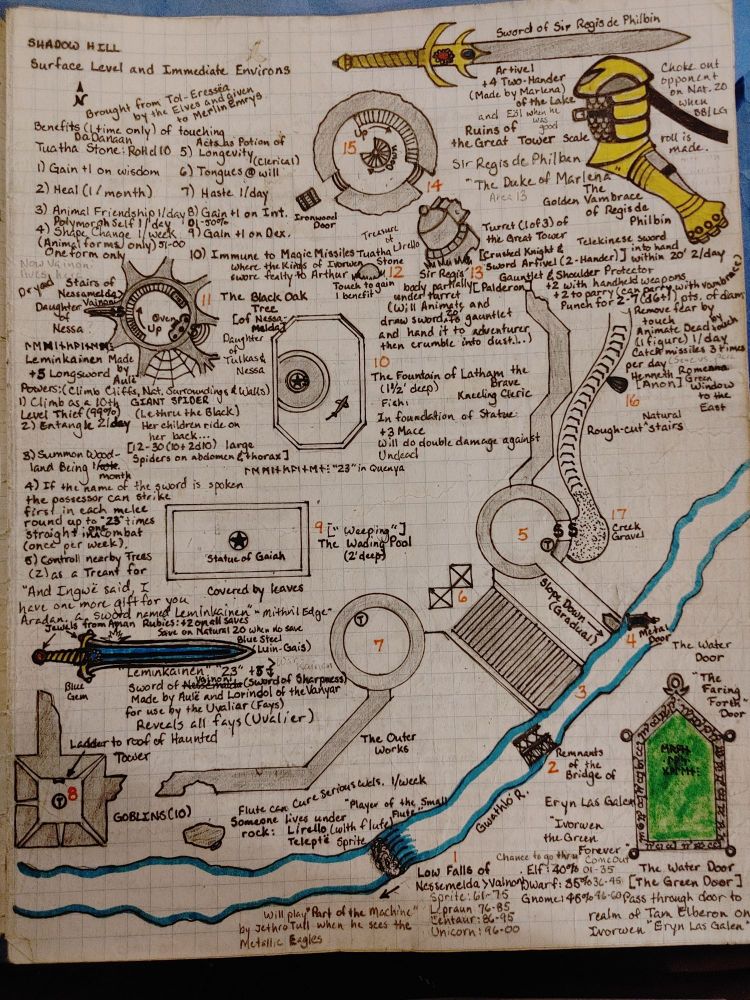 SHADOW HILL
Surface Level and Immediate Environs
N
Brought from Tol-Eressëa
by the Elves and given
to Merlin Emrys
Benefits (1 time only) of touching
DaDanaan
Tuatha Stone: Roll d10
1) Gain +1 on wisdom
2) Heal (1/month)
3) Animal Friendship 1/day
Polymorph Self 1/day
4) Shape Change 1/week
(Animal forms only) 51-00
One form only
Acts as Potion of
5) Longevity
(Clerical)
6) Tongues @ will
7) Haste 1/day
8) Gain +1 on Int.
01-50%
9) Gain +1 on Dex.
10) Immune to Magic Missiles
Sword of Sir Regis de Philbin
Artivel
+4 Two-Hander
(Made by Marlena)
of the Lake
and Esil when he
was
good
Ruins of
the Great Tower Scale
Sir Regis de Philben
"The Duke of Marlena"
Area 13
The
Golden Vambrace
of Regis de
Philbin
Choke out
opponent
on Nat. 20
when
BB/LG
roll is
made.
15
Up
Down
Ironwood
Door
14
Turret (1 of 3) of
the Great Tower
[Crushed Knight &
Sword Artivel (2-Hander)]
Telekinese sword
into hand
within 20' 2/day
Gauntlet & Shoulder Protector
+2 with handheld weapons
+2 to parry (can parry with vambrace)
Punch for 2-7 (d6+1) pts. of dam
Remove fear by
touch
Animate Dead touch
(1 figure) 1/day
Catch missiles 3 times
per day
Henneth Romenna
[Anon] Green
Window
to the
East
16
Natural
Rough-cut stairs
Treasure
of Lirello
Tuatha
Stone
12
Touch to gain
1 benefit
where the Kings of Ivorwen
swore fealty to Arthur
Sir Regis 13
body partially [Palderon]
under turret
(Will Animate and
draw sword to
gauntlet
and hand it to adventurer,
then crumble into dust...)
Now Vainon
lives here
Dryad
Stairs of
Nessemelda
Vainon
Daughter
of
Nessa
11
Oven
Up
The Black Oak
Tree
[of Nessa-
Melda]
Daughter
of
Tulkas &
Nessa
Leminkainen Made
by
+5 Longsword Aulë
Powers: (Climb Cliffs, Nat. Surroundings & Walls)
1) Climb as a 10th
Level Thief (99%)
2) Entangle 2/day
GIANT SPIDER
(Lethru the Black)
Her children ride on
her back...
[12-30 (10+2d10) large
Spiders on abdomen & thorax]
3) Summon Wood-
land Being 1/
month
"23" in Quenya
4) If the name of the sword is spoken
the possessor can strike
first in each melee
round up to "23" times
straight in one combat
(once per week).
5) Control nearby Trees
(2) as a Treant for
10
The Fountain of Latham the
Brave
(1½' deep)
Kneeling Cleric
Fish:
In foundation of Statue:
+3 Mace
Will do double damage against
Undead
9 ["Weeping"]
The Wading Pool
(2' deep)
Statue of Gaiah
Covered by leaves
17
Creek
Gravel
5
S S
T
Slope Down
(Gradual)
6
4 Metal
Door
The Water
Door
3
7
T
"And Ingwë said, I
have one more gift for you
Aradan, a sword named Leminkainen" "Mithril Edge"
Jewels from Aman Rubies: +2 on all saves
Save on Natural 20 when no save
Blue Steel
(Luin-Gais)
Blue
Gem
"Leminkainen" "23" +5
Vainoni
Sword of Nessemelda (Sword of Sharpness)
Made by Aulë and Lorindol of the Vanyar
for use by the Uvaliar (Fays)
Reveals all fays (Uvalier)
Ladder to roof of Haunted
Tower
8
T
GOBLINS (10)
The Outer
Works
Flute can Cure Serious Wds. 1/week
Someone lives under
rock:
"Player of the Small
Flute"
Lirello (with flute)
Telepte Sprite
2 Remnants
of the
Bridge of
Eryn Las Galen
"Ivorwen
the Green
Forever"
Gwathló R.
"The
Faring
Forth"
Door
1
Low Falls of
Nessemelda > Vainoni
Chance to go thru Come Out
Elf: 40% 01-35
Dwarf: 35% 36-45
Gnome: 45% 46-60
Sprite: 61-75
L'praun 76-85
Centaur: 86-95
Unicorn: 96-00
The Water Door
[The Green Door]
Pass through door to
realm of Tam Elberon on
Ivorwen "Eryn Las Galen"
Will play "Part of the Machine"
by Jethro Tull when he sees the
Metallic Eagles